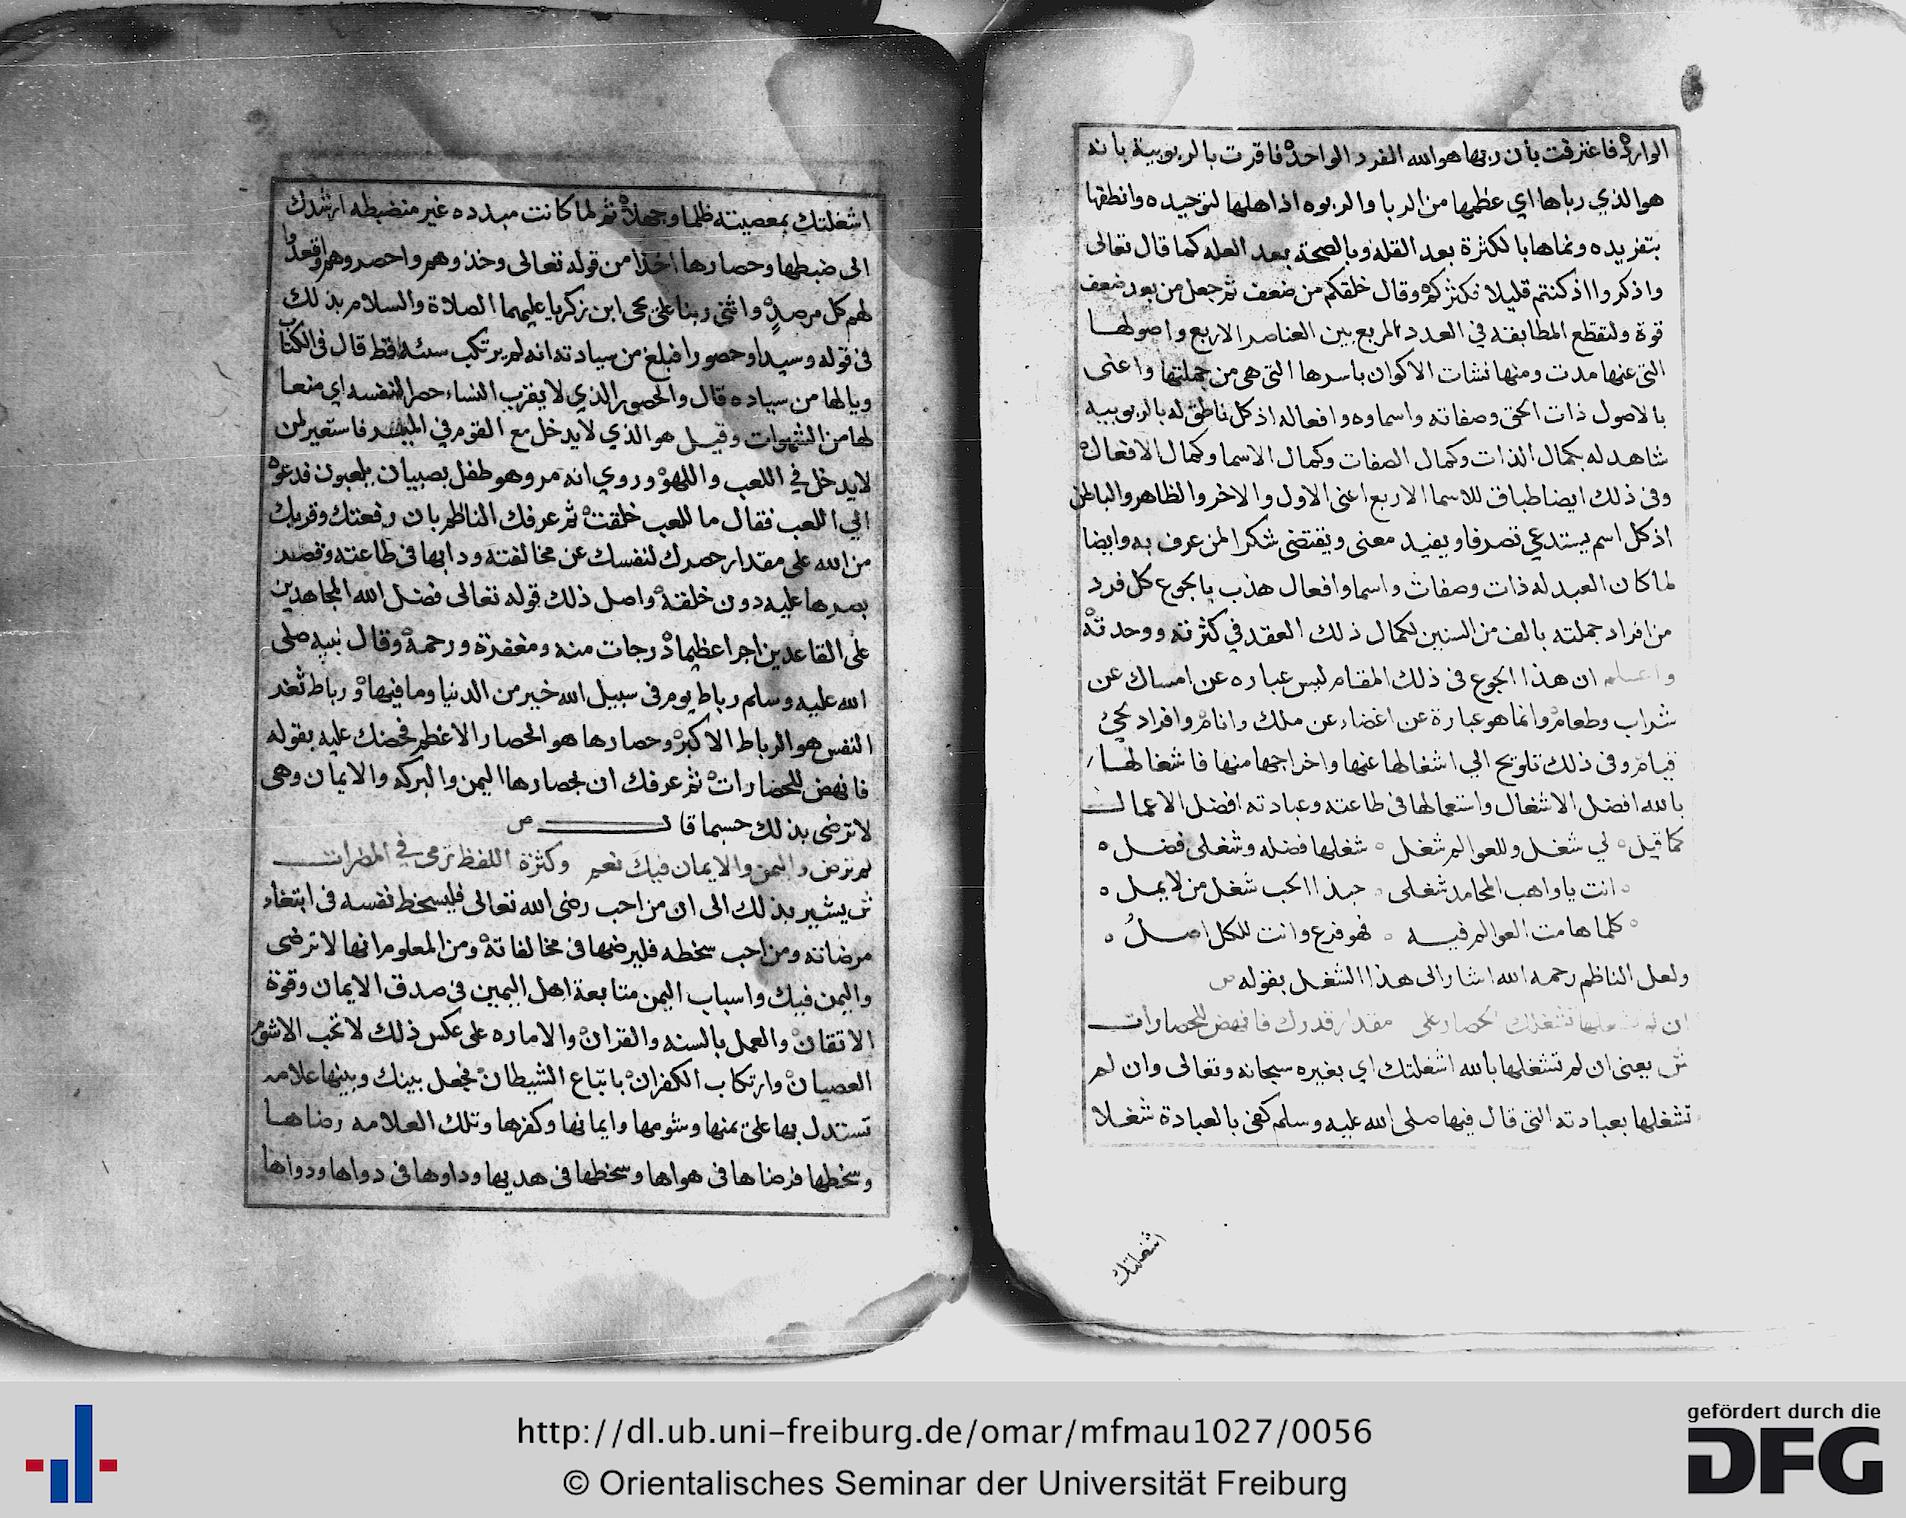 الوارد فاعترفت بأن ربها هو الله الفرد الواحد فاقرت بالربوبية بانه
هو الذي رباها اي عظمها من الربا والربوه اذ اهلها لتوحيده وانطقها
بتفريده ونماها بالكثرة بعد القله وبالصحة بعد العله كما قال تعالى
واذكروا اذ كنتم قليلا فكثركم وقال خلقكم من ضعف ثم جعل من بعد ضعف
قوة ولتقطع المطابقه في العدد المربع بين العناصر الاربع واصولها
التي عنها مدت ومنها نشات الاكوان باسرها التي هي من جملتها واعنى
بالاصول ذات الحق وصفاته واسماوه وافعاله اذ كل ناطق له بالربوبيه
شاهد له بكمال الذات وكمال الصفات وكمال الاسما وكمال الافعال
وفي ذلك ايضا طباق للاسما الاربع اعنى الاول والاخر والظاهر والباطن
اذ كل اسم يستدعي تصرفا ويفيد معنى ويقتضي شكرا لمن عرف به وايضا
لما كان العبد له ذات وصفات واسما وافعال هذب بالجوع كل فرد
من افراد جملته بالف من السنين لكمال ذلك العقد في كثرته ووحدته
واعلم ان هذا الجوع في ذلك المقام ليس عباره عن امساك عن
شراب وطعام وانما هو عبارة عن اغضاء عن ملك وانام وافراد لحي
قيام وفي ذلك تلويح الي اشغالها عنها واخراجها منها فاشغالها
بالله افضل الاشغال واستعمالها في طاعته وعبادته افضل الاعمال
كما قيل لي شغل وللعوالم شغل شغلها فضله وشغلى فضل
انت يا واهب المحامد شغلى حبذا الحب شغل من لا يمل
كلما هامت العوالم فيه فهو فرع وانت للكل اصل
ولعل الناظم رحمه الله اشار الى هذا الشغل بقوله ص
ان لم تشغلها تشغلك الحصار على مقدار قدرك فانهض للحصارات
ش يعني ان لم تشغلها بالله اشغلتك اي بغيره سبحانه وتعالى وان لم
تشغلها بعبادته التي قال فيها صلى الله عليه وسلم كفى بالعبادة شغلا
اشغلتك
اشغلتك بمعصيته ظلما وجهلا ثم لما كانت مبدده غير منضبطه ارشدك
الى ضبطها وحصارها اخذا من قوله تعالى وخذوهم واحصروهم واقعدوا
لهم كل مرصد واثنى ربنا على يحى ابن زكريا عليهما الصلاة والسلام بذلك
في قوله وسيدا وحصورا فبلغ من سيادته انه لم يرتكب سيئه قط قال في الكتاب
ويالها من سياده قال والحصور الذي لا يقرب النساء حصرا لنفسه اي منعا
لها من الشهوات وقيل هو الذي لا يدخل مع القوم في الميسر فاستعير لمن
لا يدخل في اللعب واللهو وروي انه مر وهو طفل بصبيان يلعبون فدعوه
الي اللعب فقال ما للعب خلقت ثم عرفك الناظم بان رفعتك وقربك
من الله على مقدار حصرك لنفسك عن مخالفته ودابها في طاعته وقصد
بصرها عليه دون خلقه واصل ذلك قوله تعالى فضل الله المجاهدين
على القاعدين اجرا عظيما درجات منه ومغفرة ورحمة وقال نبيه صلى
الله عليه وسلم رباط يوم في سبيل الله خير من الدنيا وما فيها ورباط ثغر
النفس هو الرباط الاكبر وحصارها هو الحصار الاعظم فحضك عليه بقوله
فانهض للحصارات ثم عرفك ان بحصارها اليمن والبركه والايمان وهي
لا ترضى بذلك حسبما قال ص
لم ترض واليمن والايمان فيك نعم وكثرة اللفظ ترمى في المضرات
ش يشير بذلك الى ان من احب رضى الله تعالى فليسخط نفسه في ابتغاء
مرضاته ومن احب سخطه فليرضها في مخالفاته ومن المعلوم انها لا ترضى
واليمن فيك واسباب اليمن متابعة اهل اليمين في صدق الايمان وقوة
الاتقان والعمل بالسنه والقران والاماره على عكس ذلك لا تحب الا شوم
العصيان وارتكاب الكفران باتباع الشيطان فجعل بينك وبينها علامه
تستدل بها على يمنها وشومها وايمانها وكفرها وتلك العلامه رضاها
وسخطها فرضاها في هواها وسخطها في هديها وداوها في دواها ودواها
http://dl.ub.uni-freiburg.de/omar/mfmau1027/0056
© Orientalisches Seminar der Universität Freiburg
gefördert durch die
DFG